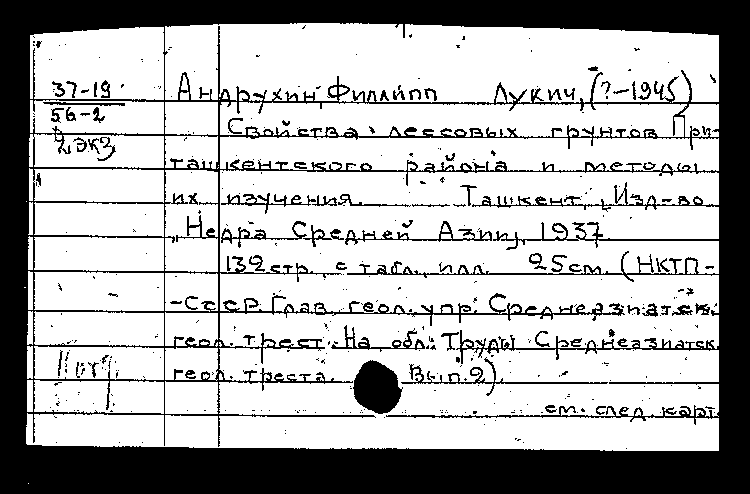 37-19
56-2
2 экз
Андрухин, Филлипп Лукич, (?-1945)
Свойства лессовых грунтов При-
ташкентского района и методы
их изучения. Ташкент, Изд-во
"Недра Средней Азии", 1937
132 стр., с табл., илл. 25 см. (НКТП-
-СССР. Глав. геол. упр. Среднеазиатск.
геол. трест. На обл.: Труды Среднеазиатск.
геол. треста. Вып. 2).
см. след. карт.